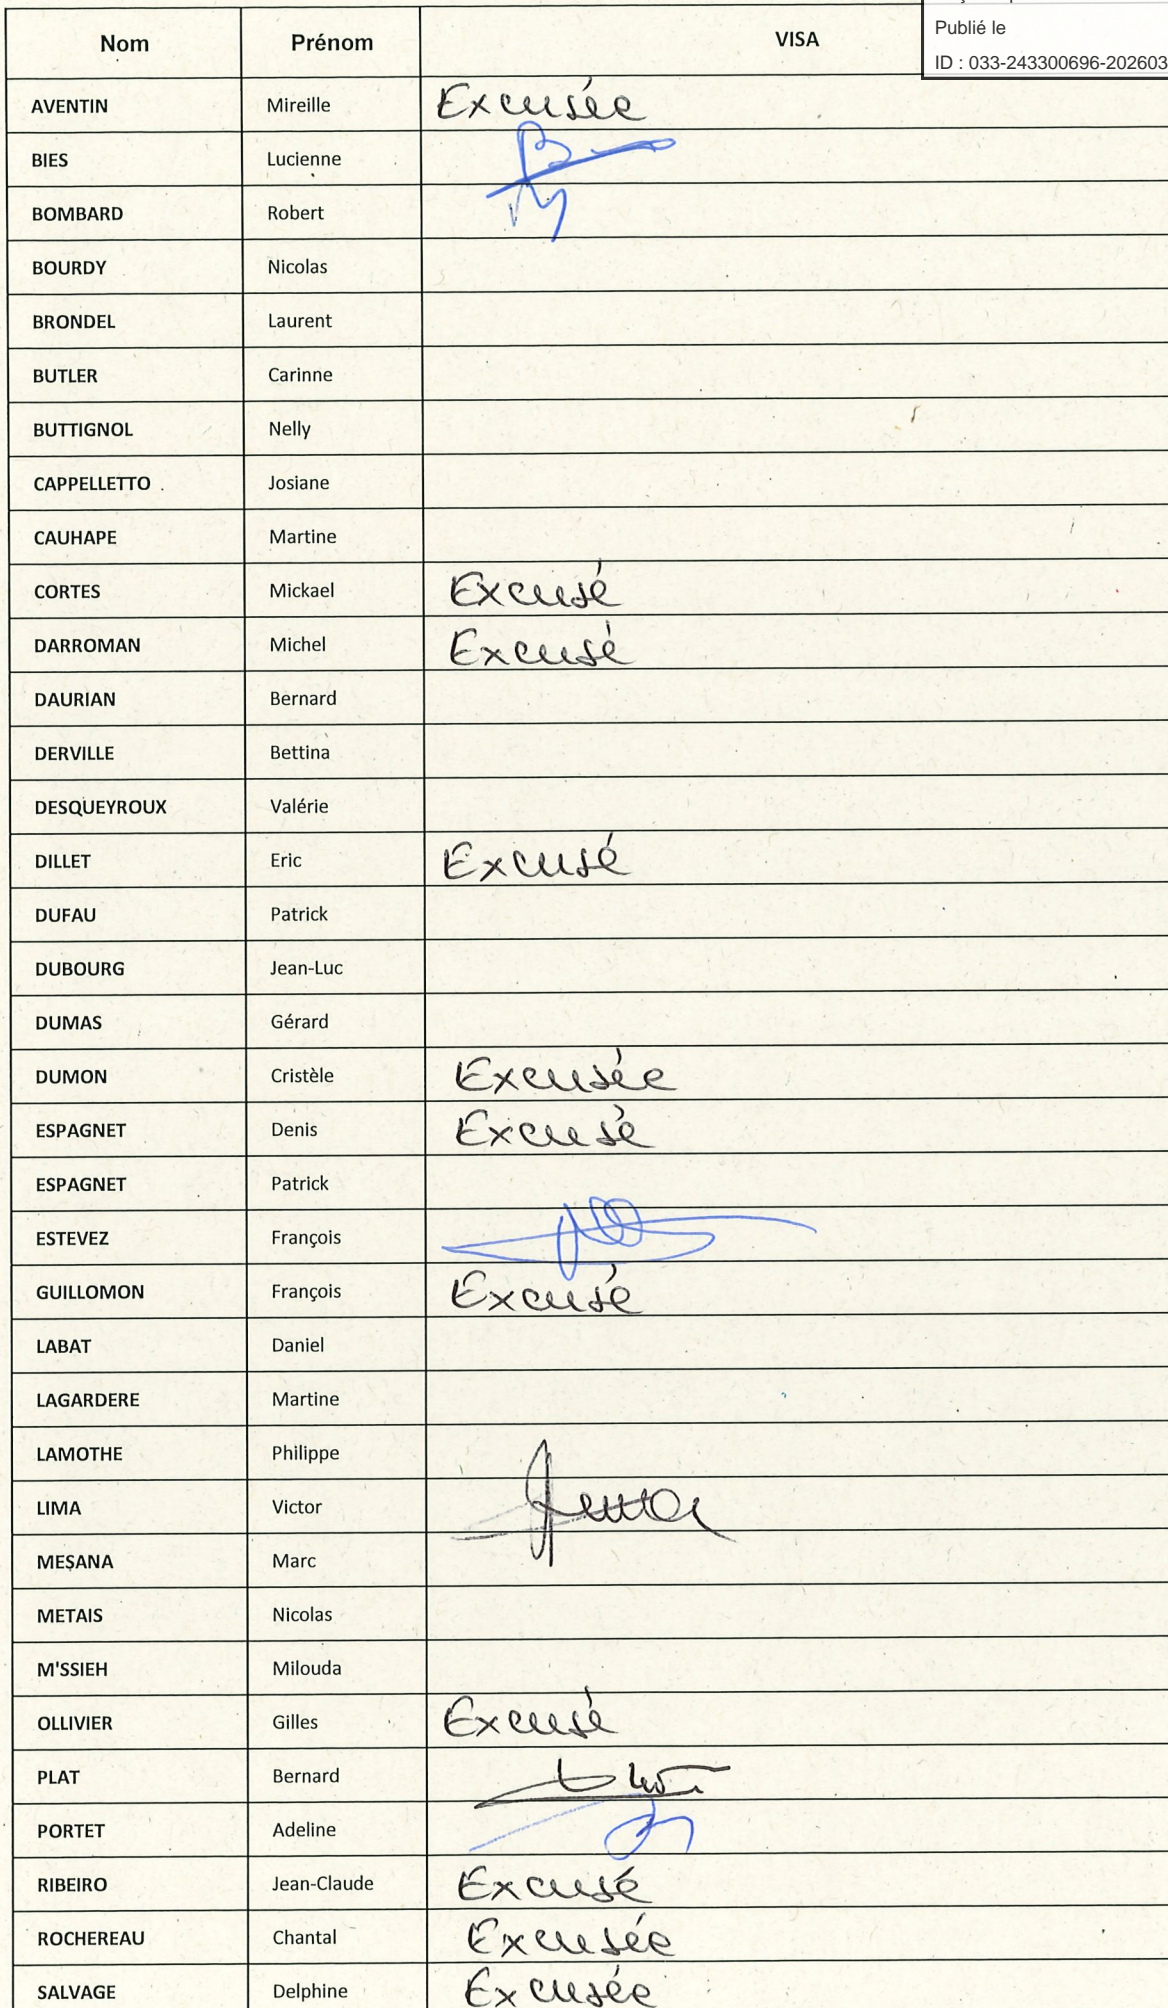 Publié le
ID : 033-243300696-202603
Nom Prénom VISA
AVENTIN Mireille Excusée
BIES Lucienne
BOMBARD Robert
BOURDY Nicolas
BRONDEL Laurent
BUTLER Carinne
BUTTIGNOL Nelly
CAPPELLETTO Josiane
CAUHAPE Martine
CORTES Mickael Excusé
DARROMAN Michel Excusé
DAURIAN Bernard
DERVILLE Bettina
DESQUEYROUX Valérie
DILLET Eric Excusé
DUFAU Patrick
DUBOURG Jean-Luc
DUMAS Gérard
DUMON Cristèle Excusée
ESPAGNET Denis Excusé
ESPAGNET Patrick
ESTEVEZ François
GUILLOMON François Excusé
LABAT Daniel
LAGARDERE Martine
LAMOTHE Philippe
LIMA Victor
MESANA Marc
METAIS Nicolas
M'SSIEH Milouda
OLLIVIER Gilles Excusé
PLAT Bernard
PORTET Adeline
RIBEIRO Jean-Claude Excusé
ROCHEREAU Chantal Excusée
SALVAGE Delphine Excusée